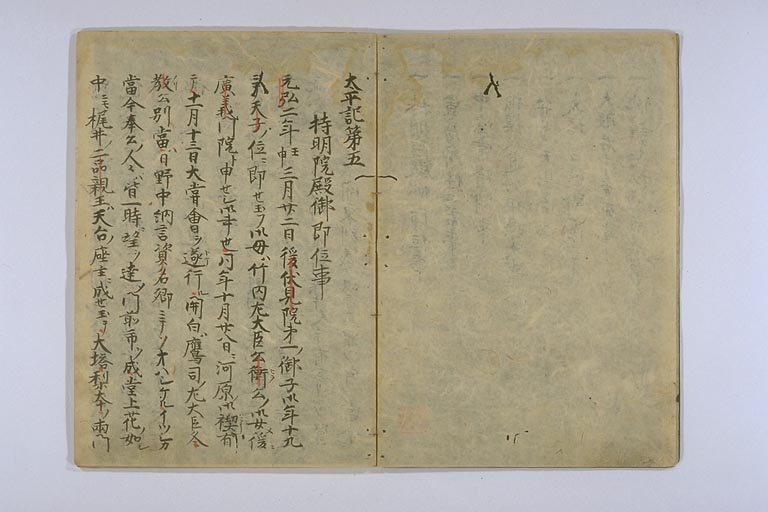 太平記第五
持明院殿御即位事
元弘二年壬申三月廿二日後伏見院第一御子御年十九
ニテ天子ノ位ニ即セ玉フ御母ハ竹内左大臣公衡公ノ御女後
廣義門院ト申セシ御事也同年十月廿八日ニ河原ノ御禊有
テ十一月十三日大嘗會ヲ遂行ル関白ハ鷹司左大臣冬
教公別當ハ日野中納言資名卿ニテソオハシケルイツシカ
當今奉公ノ人々ハ皆一時ニ望ヲ達シ門前市ヲ成堂上花如シ
中ニモ梶井二品親王ハ天台座主ニ成セ玉テ大塔梨本ノ両門